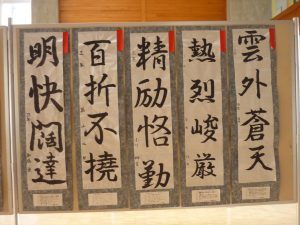 雲外蒼天
熱烈峻厳
精励恪勤
百折不撓
明快闊達